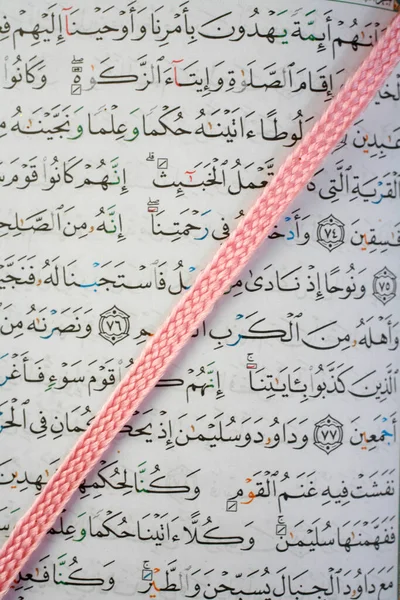 يَهْدُونَ بِأَمْرِنَا وَأَوْحَيْنَآ إِلَيْهِمْ
وَإِقَامَ ٱلصَّلَوٰةِ وَإِيتَآءَ ٱلزَّكَوٰةِ ۖ وَكَانُوا۟
وَلُوطًا ءَاتَيْنَٰهُ حُكْمًا وَعِلْمًا وَنَجَّيْنَٰهُ
ٱلْقَرْيَةِ ٱلَّتِى تَّعْمَلُ ٱلْخَبَٰٓئِثَ ۗ إِنَّهُمْ كَانُوا۟ قَوْمَ
فَٰسِقِينَ ﴿٧٤﴾ فِى رَحْمَتِنَآ ۖ إِنَّهُۥ مِنَ ٱلصَّٰلِحِ
﴿٧٥﴾ وَنُوحًا إِذْ نَادَىٰ فَٱسْتَجَبْنَا لَهُۥ
وَأَهْلَهُۥ مِنَ ٱلْكَرْبِ ﴿٧٦﴾ وَنَصَرْنَٰهُ مِنَ
ٱلَّذِينَ كَذَّبُوا۟ بِـَٔايَٰتِنَآ ۚ إِنَّهُمْ قَوْمَ سَوْءٍ
أَجْمَعِينَ ﴿٧٧﴾ وَدَاوُۥدَ وَسُلَيْمَٰنَ إِذْ فِى
نَفَشَتْ فِيهِ غَنَمُ ٱلْقَوْمِ وَكُنَّا لِحُكْمِهِمْ
فَفَهَّمْنَٰهَا سُلَيْمَٰنَ ۚ وَكُلًّا ءَاتَيْنَا حُكْمًا وَعِلْمًا
مَعَ دَاوُۥدَ ٱلْجِبَالَ يُسَبِّحْنَ وَٱلطَّيْرَ ۚ وَكُنَّا